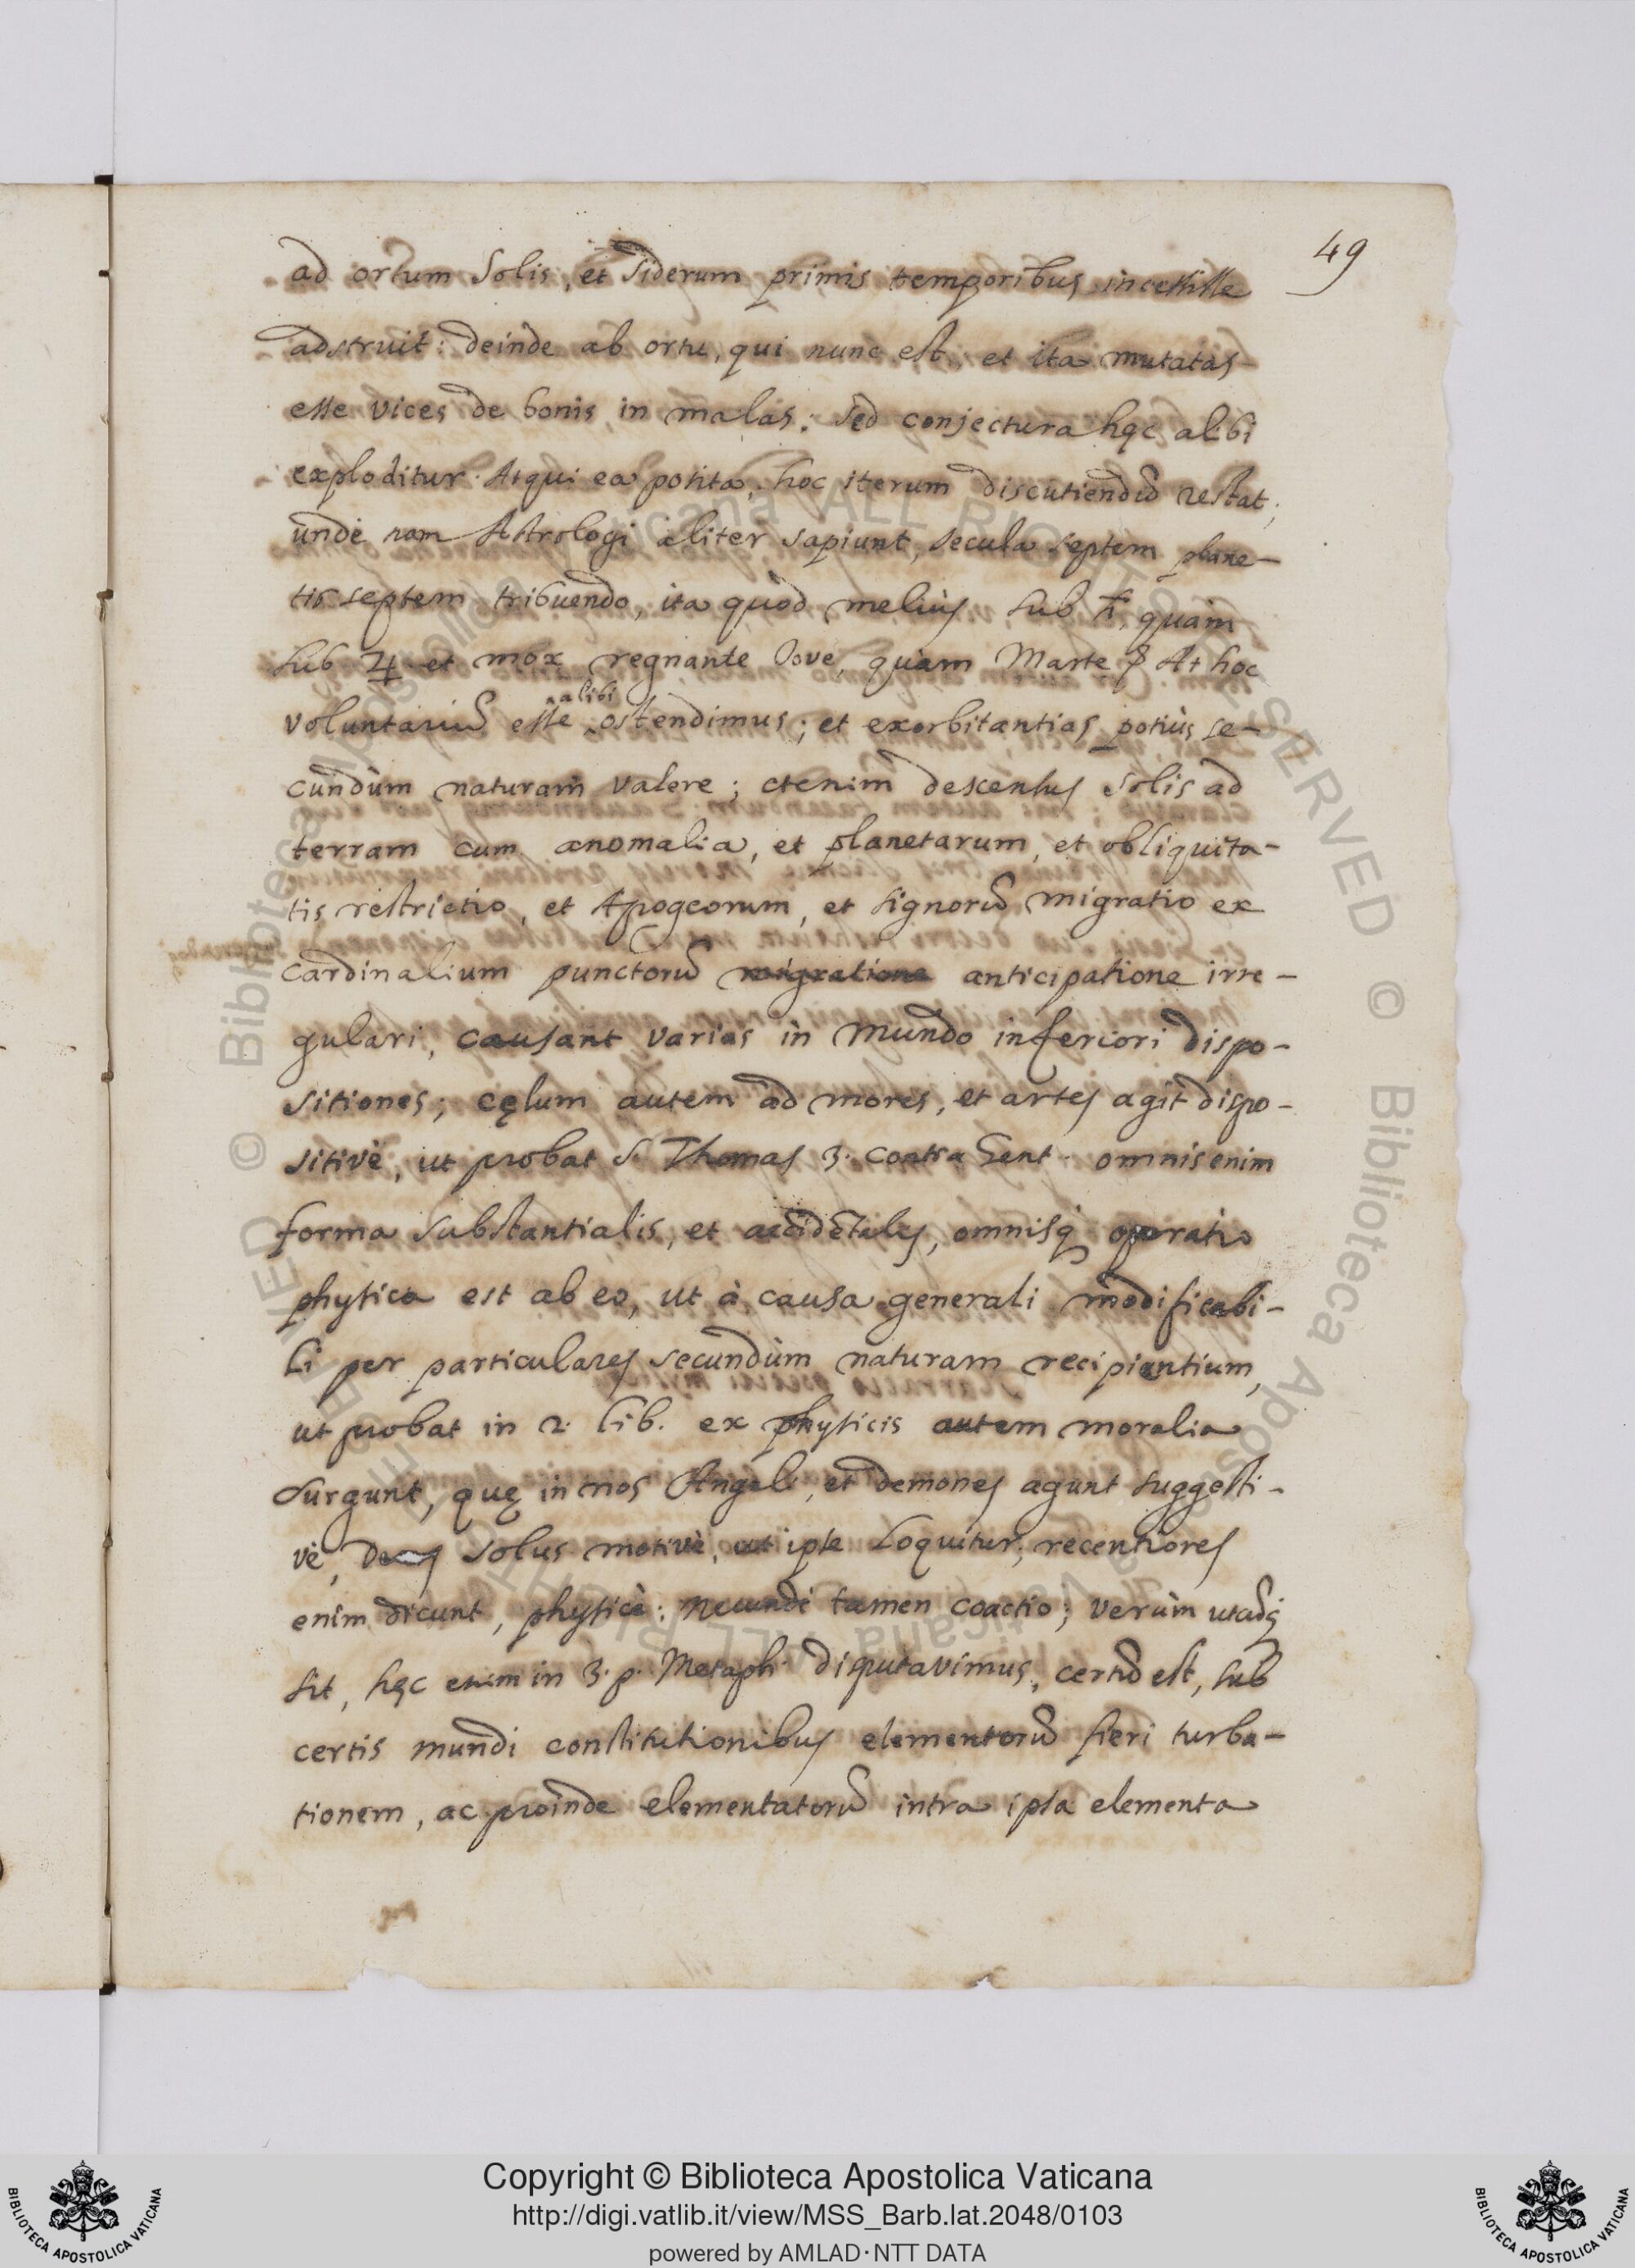 49
ad ortum Solis, et siderum primis temporibus incessisse
adstruit: deinde ab ortu, qui nunc est, et ita mutatas
esse vices de bonis in malas: sed conjectura hęc alibi
exploditur. Atqui ea posita, hoc iterum discutiendũ restat,
unde nam Astrologi aliter sapiunt, secula septem plane-
tis septem tribuendo, ita quòd melius sub ♄, quàm
sub ♃ et mox regnante Iove, quàm Marte? At hoc
voluntariũ esse alibi ostendimus; et exorbitantias potiùs se-
cundùm naturam valere; etenim descensus Solis ad
terram cum anomalia, et planetarum, et obliquita-
tis restrictio, et Apogeorum, et signorũ migratio ex
cardinalium punctorũ migratione anticipatione irre-
gulari, causant varias in mundo inferiori dispo-
sitiones; cęlum autem ad mores, et artes agit dispo-
sitivè, ut probat S. Thomas 3. contra Gent. omnis enim
forma substantialis, et accidẽtalis, omnisq́ operatio
physica est ab eo, ut à causa generali modificabi-
li per particulares secundùm naturam recipientium,
ut probat in 2. lib. ex physicis autem moralia
surgunt, quę in nos Angeli, et demones agunt suggesti-
vè, Deus solus motivè, ut ipse loquitur; recentiores
enim dicunt, physicè: tamen coactio; verùm
sit, hęc enim in 3. p. Metaph. disputavimus, certũ est, sub
certis mundi constitutionibus elementorũ fieri turba-
tionem, ac proinde elementatorũ intra ipsa elementa
Copyright © Biblioteca Apostolica Vaticana
http://digi.vatlib.it/view/MSS_Barb.lat.2048/0103
powered by AMLAD·NTT DATA
BIBLIOTECA APOSTOLICA VATICANA
BIBLIOTECA APOSTOLICA VATICANA